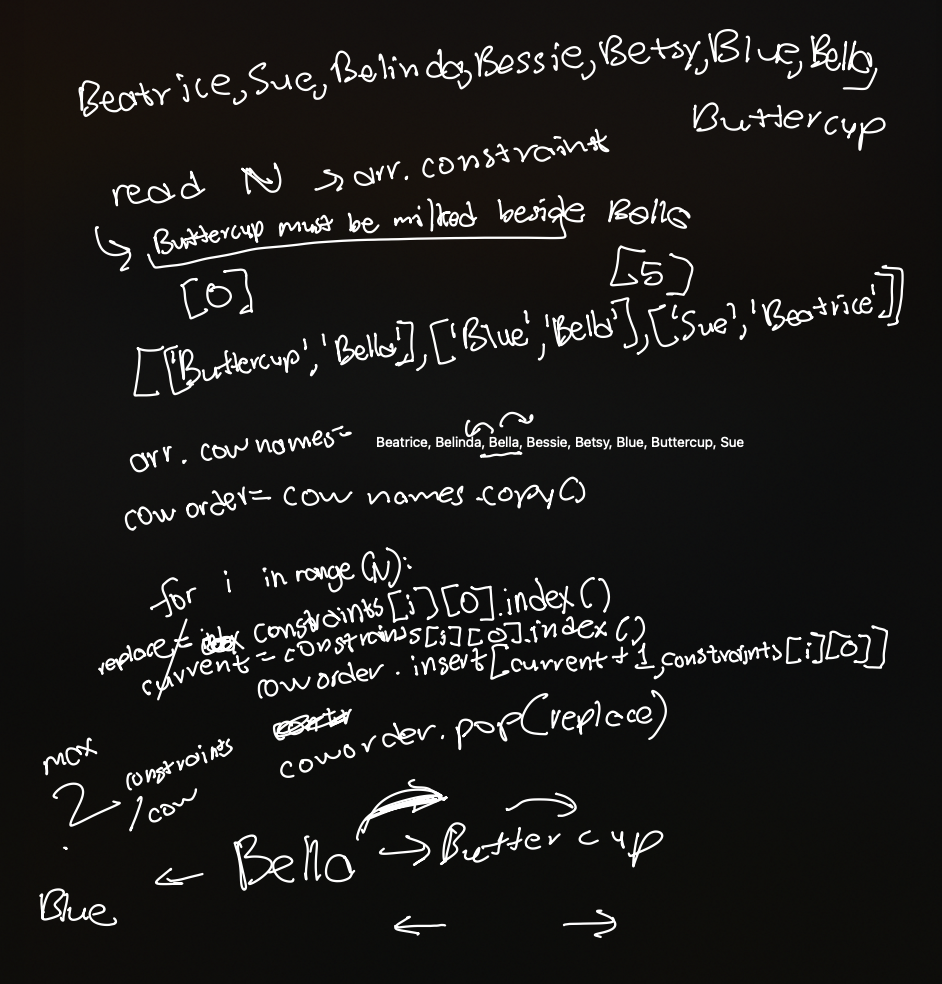 Beatrice, Sue, Belinda, Bessie, Betsy, Blue, Bella,
Buttercup
read N → arr. constraint
↳ Buttercup must be milked beside Bella
[0] [5]
[['Buttercup', 'Bella'], ['Blue', 'Bella'], ['Sue', 'Beatrice']]
arr. cow names= Beatrice, Belinda, Bella, Bessie, Betsy, Blue, Buttercup, Sue
cow order= cow names.copy()
for i in range(N):
replace= constraints[i][0].index()
current = constrains[i][0].index()
cow order.insert[current+1, constraints[i][0]]
coworder.pop(replace)
max
2 → constraints
/cow
← Bella → Buttercup →
Blue
← →